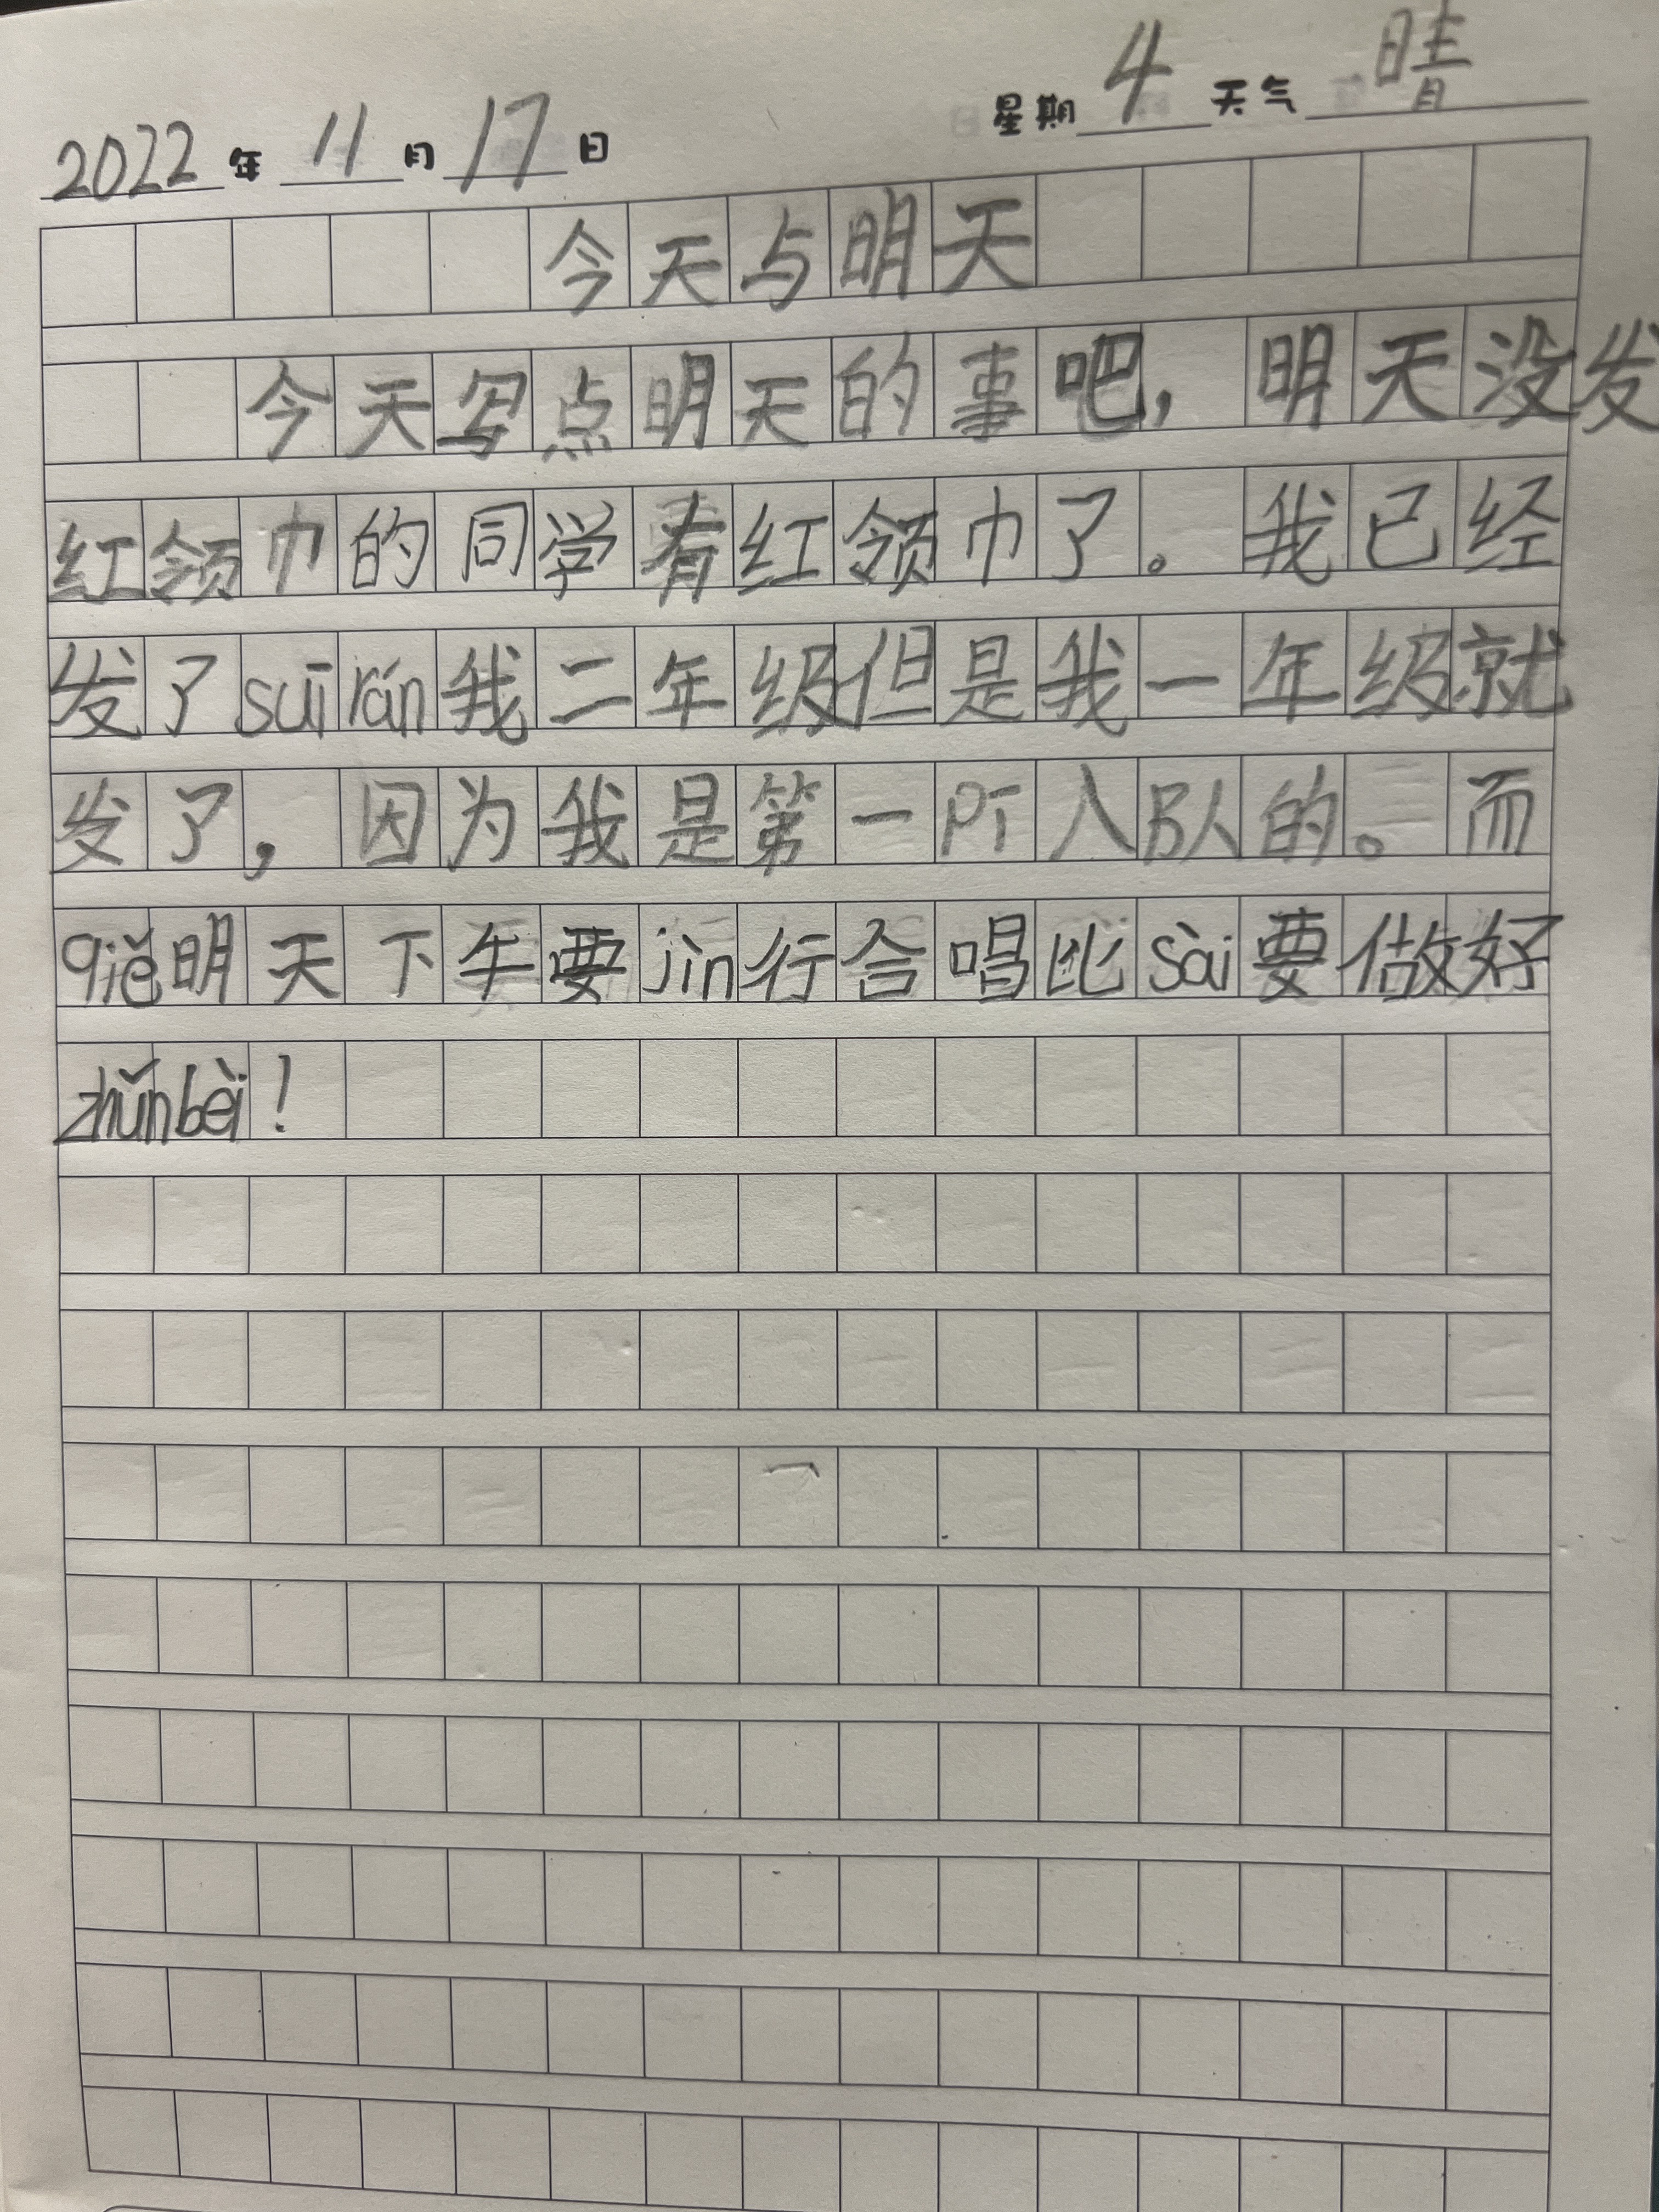 2022年11月17日 星期4天气晴
今天与明天
今天写点明天的事吧，明天没发
红领巾的同学有红领巾了。我已经
发了suī rán我二年级但是我一年级就
发了，因为我是第一pī入队的。而
qiě明天下午要jìn行合唱比sài要做好
zhǔnbèi！